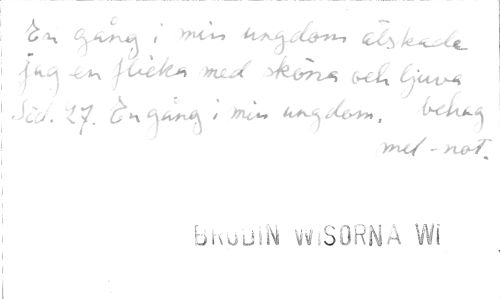 En gång i min ungdom älskade
jag en flicka med sköna och ljuva
Sid. 27. En gång i min ungdom. behag
mel-not.
BRODIN WISORNA WI